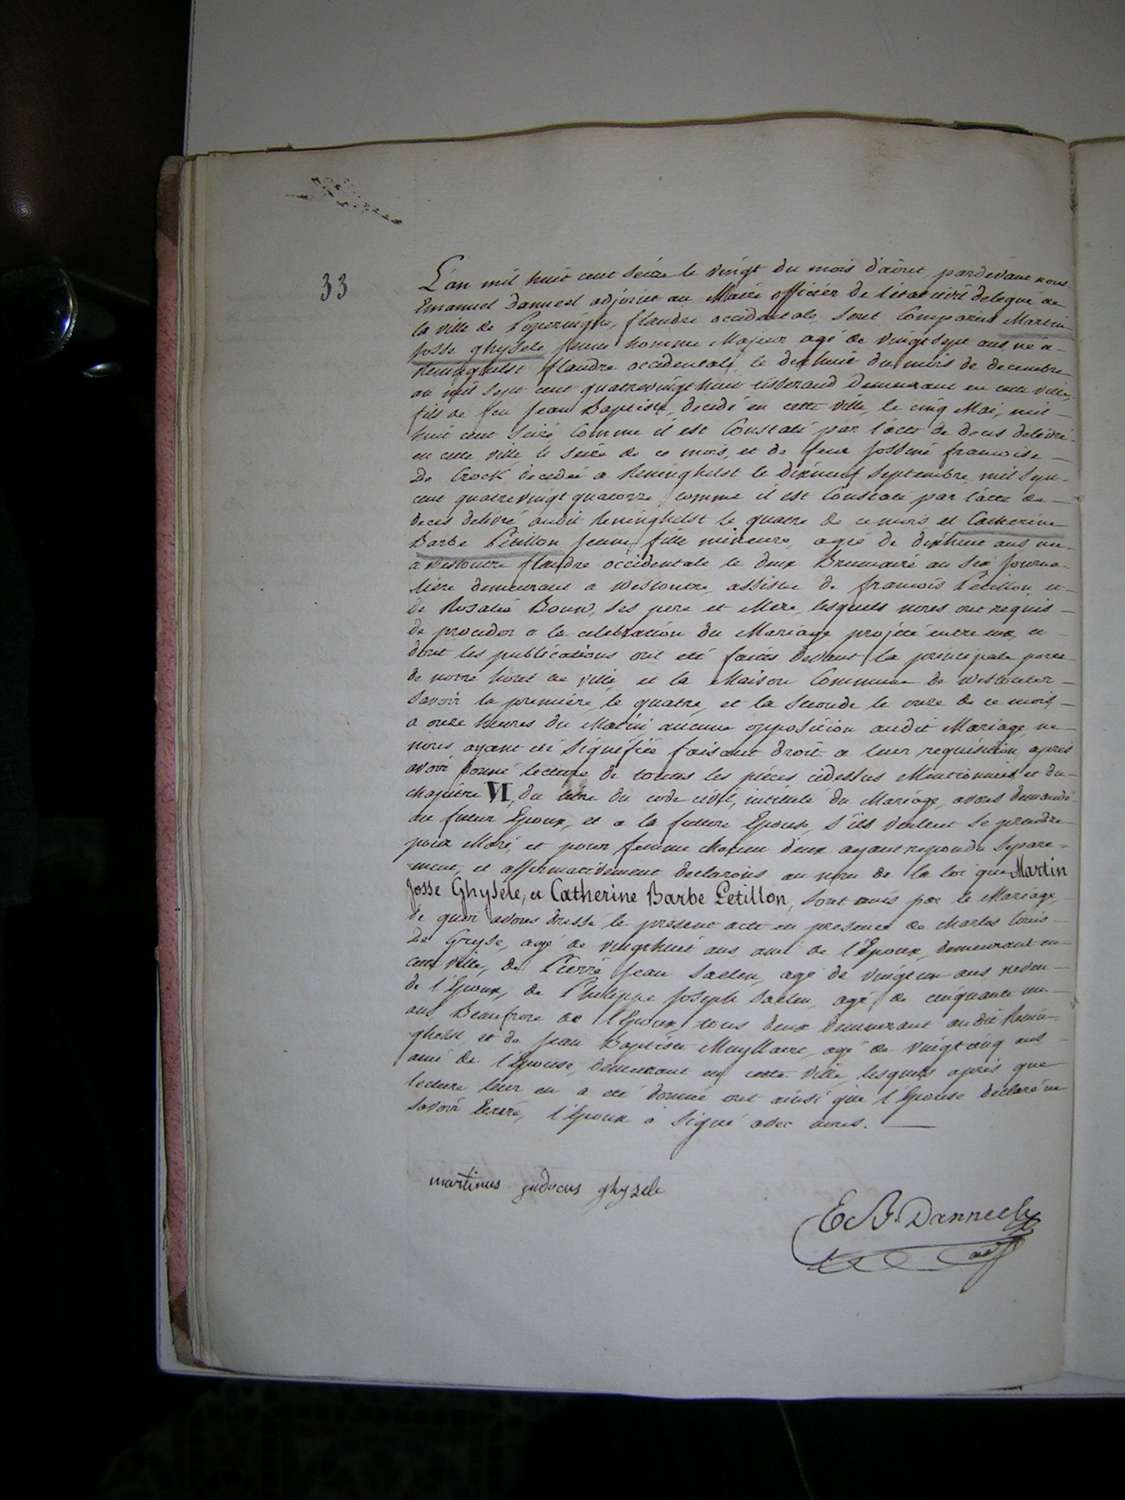 33
L'an mil huit cent seize le vingt du mois d'aout, pardevant nous
Emanuel Danneel adjoint au Maire officier de l'état civil delegué de
la ville de Poperinghe, flandre occidentale, sont Comparus Martin
Josse ghysele jeune homme Majeur agé de vingt sept ans né a
Reninghelst flandre occidentale le dixhuit du mois de decembre
an mil sept cent quatrevingt huit tisserand demeurant en cette ville,
fils de feu Jean Baptiste, decedé en cette ville, le cinq Mai, mil
huit cent seize, comme il est Constaté par l'acte de deces delivré
en cette ville le seize de ce mois, et de feue Jossine francoise
De Crock decedée a Reninghelst le dixneuf septembre, mil sept
cent quatre vingt quatorze comme il est Constaté par l'acte de
deces delivré audit Reninghelst le quatre de ce mois et Catherine
Barbe Petillon jeune fille mineure, agée de dixhuit ans née
a westoutre flandre occidentale le deux Brumaire an six journa-
liere demeurant a westoutre, assistée de francois Petillon et
de Rosalie ses pere et Mere, lesquels nous ont requis
de proceder a la celebration du Mariage projeté entre eux, et
dont les publications ont eté faites devant la principale porte
de notre hotel de ville, et la Maison Commune de westouter
savoir la premiere, le quatre, et la seconde le onze de ce mois
a onze heures du Matin aucune opposition audit Mariage ne
nous ayant eté signifiée faisant droit a leur requisition, apres
avoir donné lecture de toutes les pièces cidessus Mentionnées et du
chapitre VI, du titre du code civil, intitulé du Mariage, avons demandé
du futur Epoux, et a la future Epouse, s'ils veulent se prendre
pour Mari, et pour femme chacun deux ayant repondu separe-
ment, et affirmativement declarons au nom de la loi que Martin
Josse Ghysele, et Catherine Barbe Petillon, sont unis par le Mariage,
de quoi avons dressé le present acte en presence de Charles Louis
De Gryse, agé de vingthuit ans ami de l'Epoux, demeurant en
cette ville, de Pierre Jean Saelen, agé de vingt un ans neveu
de l'Epoux, de Philippe Joseph Saelen, agé de cinquante un
ans Beaufrere de l'Epoux, tous deux demeurant audit Renin-
ghelst, et de Jean Baptiste agé de vingtcinq ans
ami de l'Epouse, demeurant en cette ville, lesquels apres que
lecture leur en a eté donnée ont ainsi que l'Epouse declaré ne
savoir ecrire, l'Epoux a signé avec nous.
martinus judocus ghysele
E. B. Danneel
adj